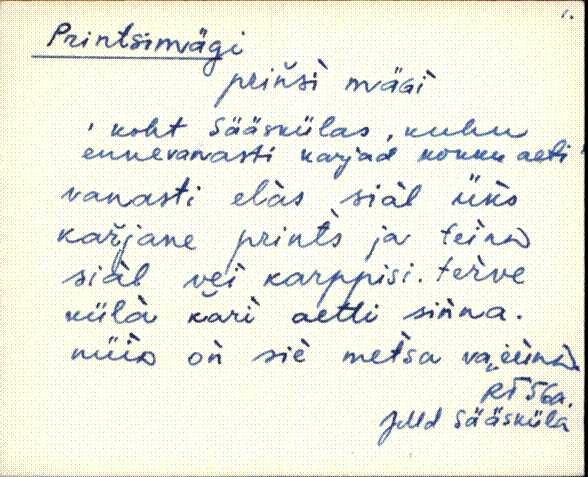 1.
Printsimägi
prińsì mäGì
'koht Sääskülas, kuhu
ennevanasti karjad kokku aeti'
vanasti elàs siàl üks
kařjane prints ja teine
siàl vei karppisi. terve
külà kari aetti sinna.
nüid on siè metsa
RT 56a.
JMd Sääsküla